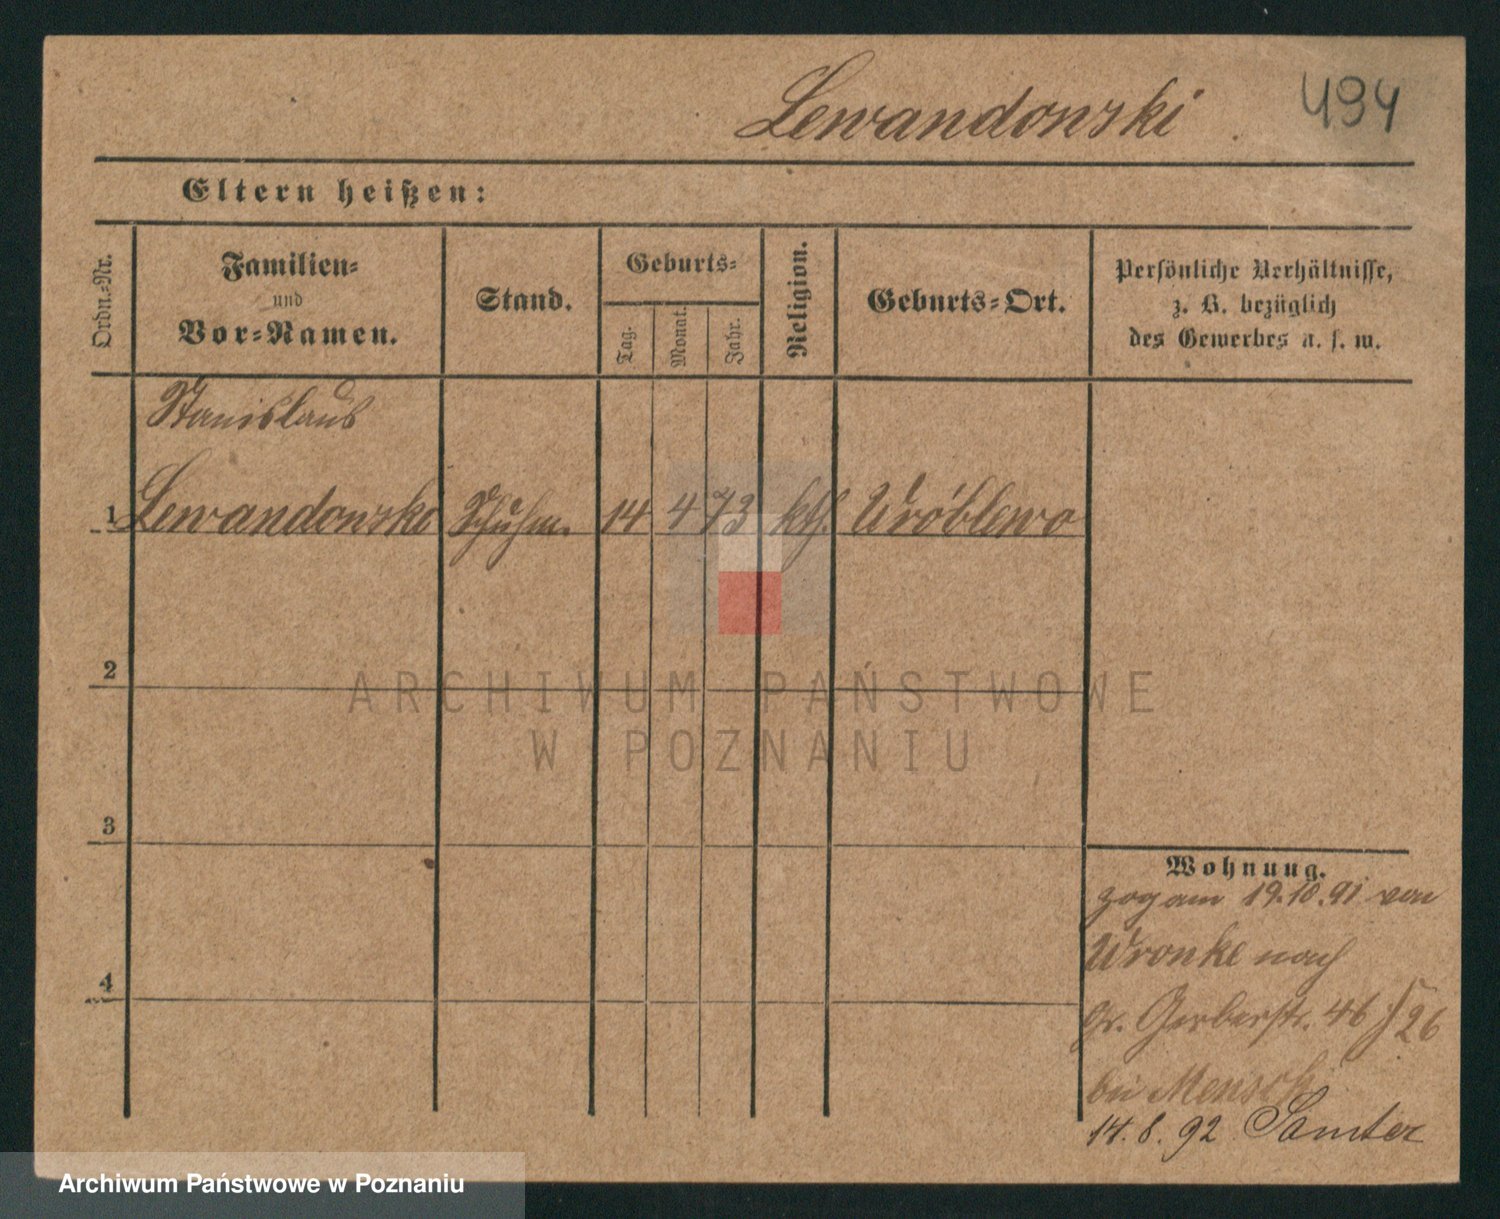 Lewandowski
494
Eltern heißen:
Ordn.-Nr.
Familien-
und
Vor-Namen.
Stand.
Geburts-
Tag.
Monat.
Jahr.
Religion.
Geburts-Ort.
Persönliche Verhältnisse,
z. B. bezüglich
des Gewerbes u. s. w.
Stanislaus
1 Lewandowski Schuhm. 14 4 73 kth. Wróblewo
2
3
4
Wohnung.
zog am 19.10.91 von
Wronke nach
Gr. Gerberstr. 46 / 26
bei Mensch
14.8.92 Samter
ARCHIWUM PAŃSTWOWE
W POZNANIU
Archiwum Państwowe w Poznaniu